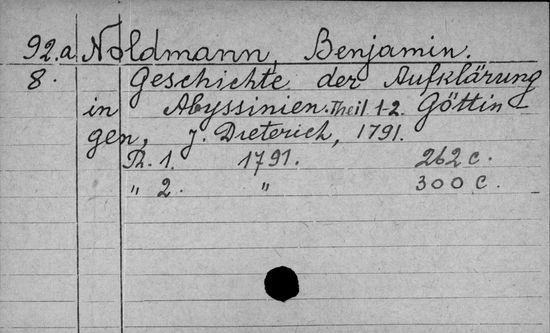 92.a Noldmann, Benjamin.
8. Geschichte der Aufklärung
in Abyssinien. Theil 1-2. Göttin
gen, J. Dieterich, 1791.
Th. 1. 1791. 262 c.
" 2. " 300 c.